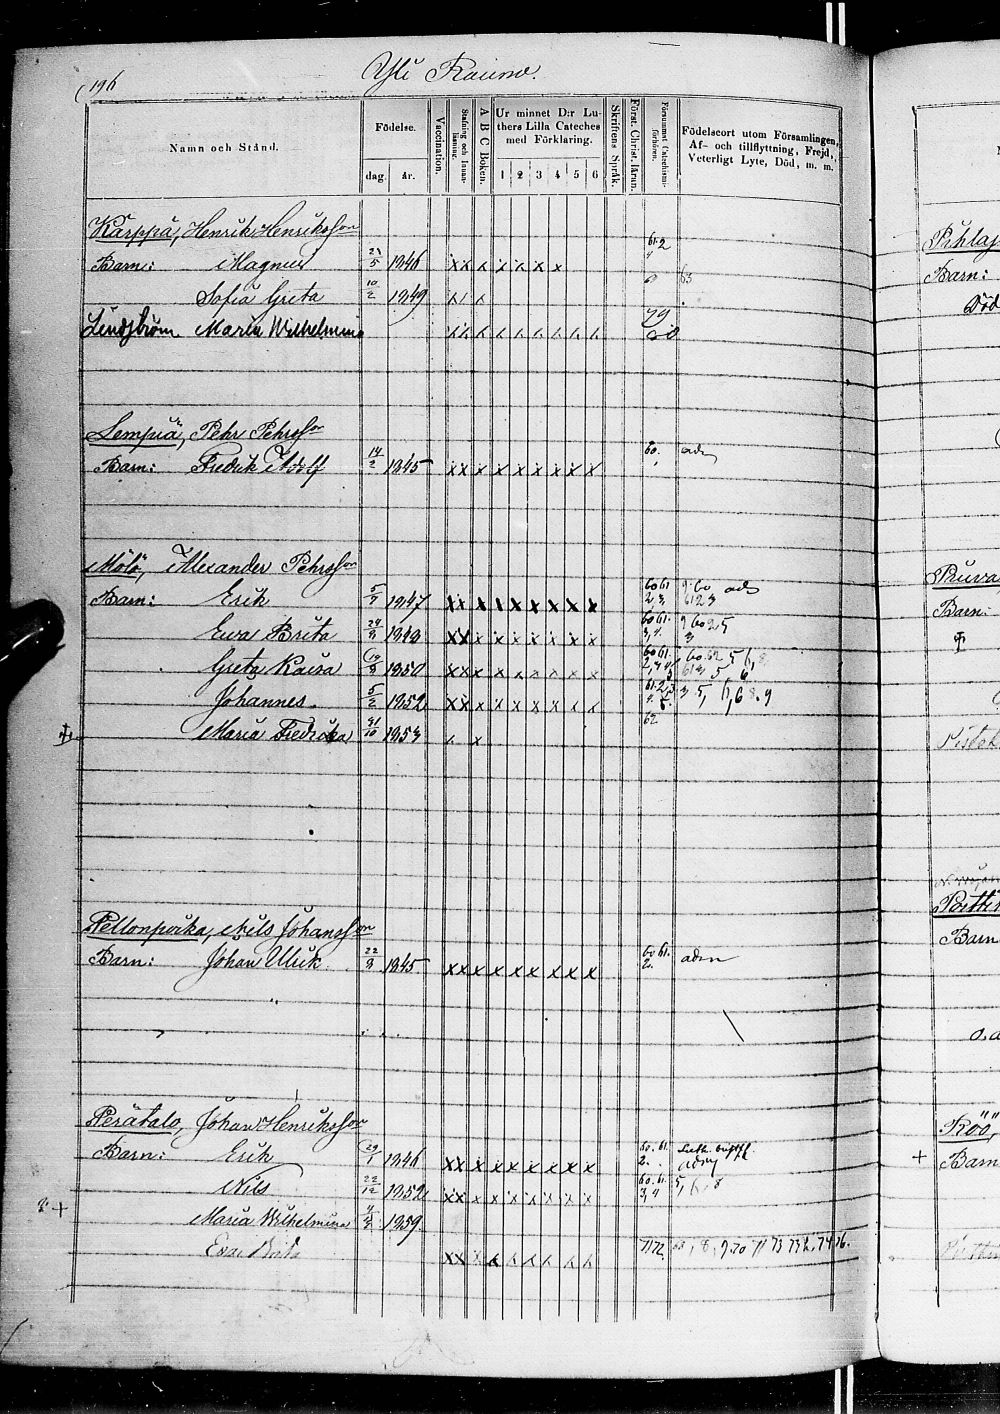 196
Yli Raumo.
Namn och Stånd.
Födelse.
dag.
år.
Vaccination.
Stafning och Innanläsning.
A B C Boken.
Ur minnet D:r Luthers Lilla Cateches med Förklaring.
1 2 3 4 5 6
Skriftens Språk.
Först. Christ. läran.
Försummat Catechismiförhören.
Födelseort utom Församlingen,
Af- och tillflyttning, Frejd,
Veterligt Lyte, Död, m. m.
Karppa, Henrik Henriksson
61.2
Barn: Magnus 23/5 1846 x x x x x x x
Sofia Greta 10/2 1849 x x 63
79
Lindström Maria Wilhelmina 80
Lempiä, Pehr Pehrsson
Barn: Fredrik Adolf 14/2 1845 x x x x x x x x x 60. adm
Mölö, Alexander Pehrsson
Barn: Erik 5/7 1847 x x x x x x x x x 60 61 2,3
Ewa Brita x x x x x x x x x 60 61. 3,4.
Greta Kaisa 1850 x x x x x x x x x 60 61
Johannes 5/2 1852 x x x x x x x x x 3 5, 6,6 8.9
Maria Fredrika 31/10 1853 x x 62
Pellonpoika, Nils Johansson
Barn: Johan Ulrik 22/8 1845 x x x x x x x x x 60 61. 2. adm
Perätalo, Johan Henriksson
Barn: Erik 29/1 1846 x x x x x x x x x 60. 61. 2.
Nils 22/12 1852 x x x x x x x x x 60. 61. 3,4 5, 6, 8
+ Maria Wilhelmina 1859
Eva Brita 71 72
Pihlaj
Barn:
Död
Puva
Barn:
Barn
Röö,
+ Barn